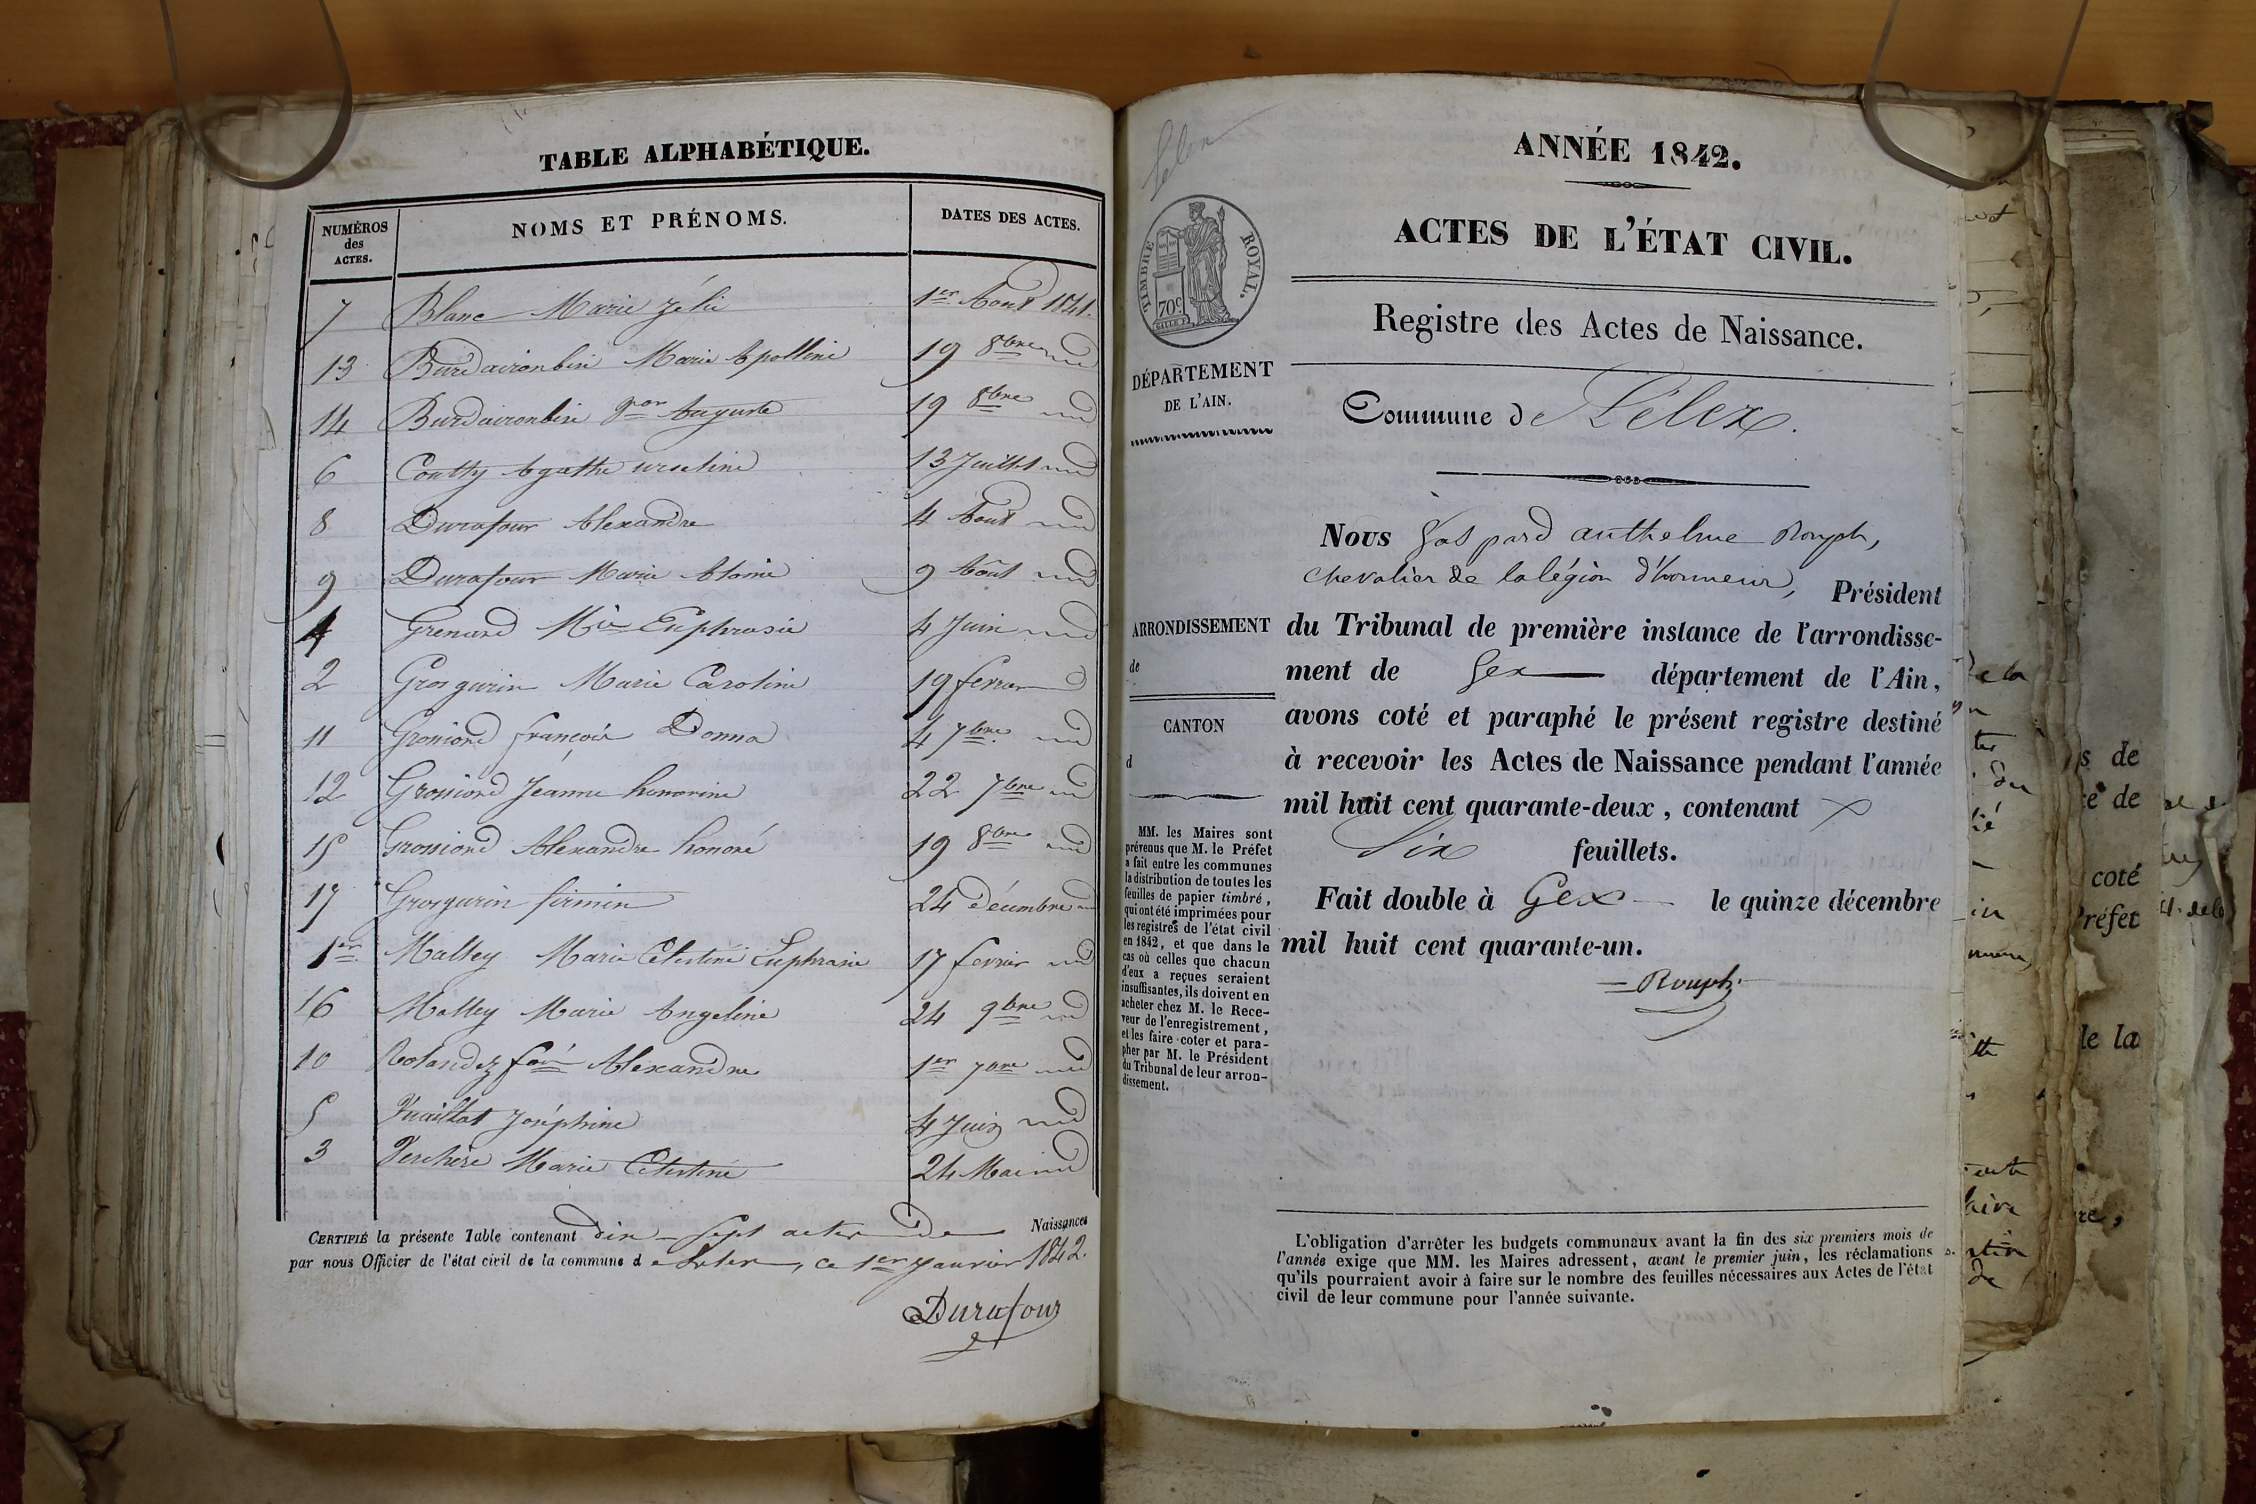 TABLE ALPHABÉTIQUE.
NUMÉROS des ACTES. NOMS ET PRÉNOMS. DATES DES ACTES.
7 Blanc Marie Zélie 1er Aout 1841.
13 Burdaironbin Marie Apolline 19 8bre
14 Burdaironbin Auguste 19 8bre
6 Coutty Agathe urseline 13 Juillet
8 Durafour Alexandre 4 Aout
9 Durafour Marie 9 Aout
4 Grenard Mie Euphrasie 4 Juin
2 Grosgurin Marie Caroline 19 fevrier
11 Grossiord françois Donna 4 7bre
12 Grossiord Jeanne honorine 22 7bre
15 Grossiord Alexandre honoré 19 8bre
17 Grosgurin firmin 24 décembre
1er Maltey Marie Celestine Euphrasie 17 fevrier
16 Maltey Marie Angeline 24 9bre
10 Rolandez Alexandre 1er 7bre
5 Vuaillat Joséphine 4 Juin
3 Verchère Marie Celestine 24 Mai
CERTIFIÉ la présente Table contenant dix-sept actes de Naissances
par nous Officier de l'état civil de la commune de Lelex, ce 1er janvier 1842.
Durafour
Lelex
TIMBRE ROYAL.
70c
DÉPARTEMENT
DE L'AIN.
ARRONDISSEMENT
de
CANTON
d
MM. les Maires sont
prévenus que M. le Préfet
a fait entre les communes
la distribution de toutes les
feuilles de papier timbré,
qui ont été imprimées pour
les registres de l'état civil
en 1842, et que dans le
cas où celles que chacun
d'eux a reçues seraient
insuffisantes, ils doivent en
acheter chez M. le Rece-
veur de l'enregistrement,
et les faire coter et para-
pher par M. le Président
du Tribunal de leur arron-
dissement.
ANNÉE 1842.
ACTES DE L'ÉTAT CIVIL.
Registre des Actes de Naissance.
Commune de Lélex.
Nous Gaspard anthelme Rouph,
chevalier de la légion d'honneur, Président
du Tribunal de première instance de l'arrondisse-
ment de Gex département de l'Ain,
avons coté et paraphé le présent registre destiné
à recevoir les Actes de Naissance pendant l'année
mil huit cent quarante-deux, contenant
Six feuillets.
Fait double à Gex le quinze décembre
mil huit cent quarante-un.
Rouph
L'obligation d'arrêter les budgets communaux avant la fin des six premiers mois de
l'année exige que MM. les Maires adressent, avant le premier juin, les réclamations
qu'ils pourraient avoir à faire sur le nombre des feuilles nécessaires aux Actes de l'état
civil de leur commune pour l'année suivante.
coté
Préfet
de la